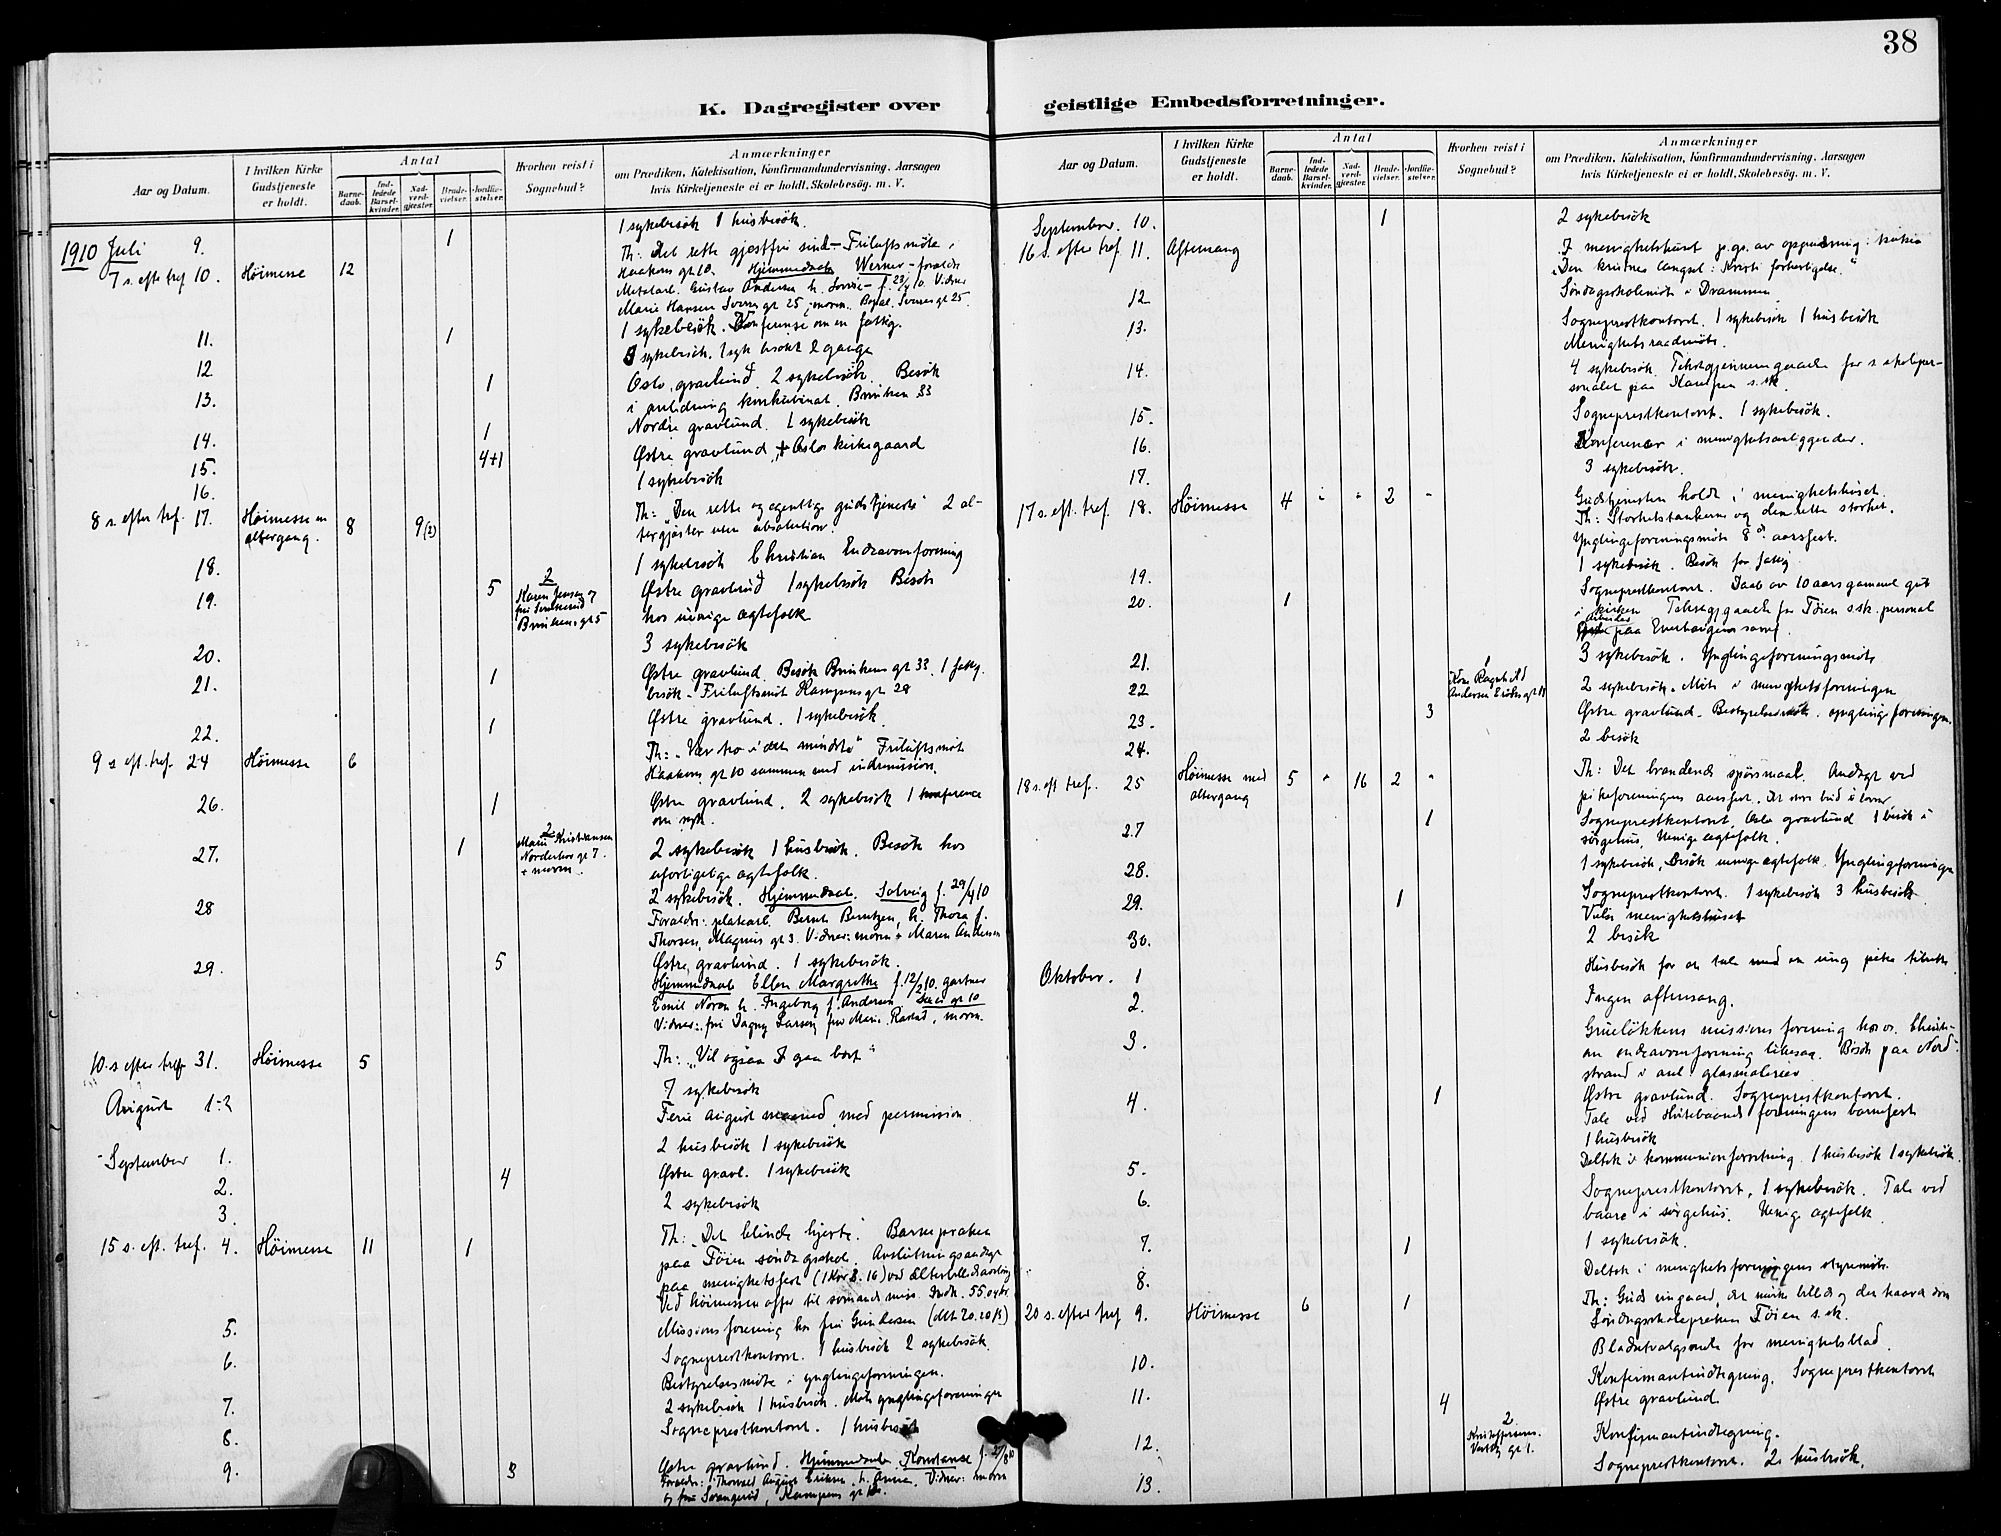 38
K. Dagregister over geistlige Embedsforretninger.
Aar og Datum.
I hvilken Kirke Gudstjeneste er holdt.
Antal
Barnedaab.
Indledede Barselkvinder.
Nadverdgjester.
Brudevielser.
Jordfæstelser.
Hvorhen reist i Sognebud?
Anmærkninger
om Prædiken, Katekisation, Konfirmandundervisning, Aarsagen
hvis Kirketjeneste ei er holdt, Skolebesøg. m. V.
1910 Juli 9. 1 1 sykebesök 1 husbesök.
7 s. efter tref 10. Höimesse 12 Th: Det rette gjestfri sind – Friluftsmöte,
Haakons gt 10. Hjemmedaab Werner – foræld.
Metalarb. Gustav Andersen h.
Marie Hansen Sverres gt 25, morm. Sverres gt 25.
11. 1 1 sykebesök. Konferense om en fattig.
12 sykebesök. 1 syk besökt 2 gange
13. 1 Oslo gravlund. 2 sykebesök. Besök
i anledning konkubinat. 33
14. 1 Nordre gravlund. 1 sykebesök
15. 4+1 Østre gravlund, + Oslo kirkegaard
16. 1 sykebesök
8 s. efter tref. 17. Höimesse m altergang. 8 9(2) Th: "Den rette og egentlige gudstjeneste" 2 al-
tergjester uten absolution.
18. 1 sykebesök Christian Endeavorforening
19. 5 2 Karen Jensen Østre gravlund 1 sykebesök Besök
hos uenige ægtefolk
20. 3 sykebesök
21. 1 Østre gravlund. Besök gt 33. 1 fattig.
besök – Friluftsmöt Kampens gt 28
22. 1 Østre gravlund. 1 sykebesök.
9 s. eft. tref. 24 Höimesse 6 Th: "Vær tro i det mindste" Friluftsmöt
Haakons gt 10 sammen med indremission.
26. 1 Østre gravlund. 2 sykebesök 1 konference
om syk.
27. 1 2 Marie Kristiansen Norderhov gt 7. + morm. 2 sykebesök 1 husbesök. Besök hos
uforligelige ægtefolk.
28 2 sykebesök. Hjemmedaab. Solveig f. 29/4 10
Foræld: platearb. Bernt Berntzen h. Thora f.
Thorsen, Magnus gt 3. Vidner: morm + Maren Andersen
29. 5 Østre gravlund. 1 sykebesök.
Hjemmedaab Ellen Margrethe f. 12/2 10. gartner
Emil Noren h. Ingeborg f. Andersen gt 10
Vidner: fru Dagny Larsen fru Marie, morm.
10. s efter tref 31. Höimesse 5 Th: "Vil ogsaa I gaa bort"
August 1-2 7 sykebesök
Ferie August maaned, med permission.
September 1. 2 husbesök 1 sykebesök
2. 4 Østre gravl. 1 sykebesök
3. 2 sykebesök
15 s. eft. tref. 4. Höimesse 11 1 Th: "Det blinde hjerte". Barnepræken
paa Töien söndagsskole. Avslutningsandagt
paa menighetsfest
Ved höimessen offer til sömandsmiss.
5. Missionsforening hos fru Gundersen
6. Sogneprestkontoret. 1 husbesök 2 sykebesök.
Bestyrelsesmöte i ynglingeforeningen.
7. 2 sykebesök 1 husbesök. Möte ynglingeforeningen
8. Sogneprestkontoret. 1 husbesök
9. 3 Østre gravlund. Hjemmedaab. Konstanse f. 27/8 10
Foræld: Thorvald August Eriksen h. Anna. Vidner: morm
og fru, Kampens gt
September 10. 1 2 sykebesök
16 s. efter tref 11. Aftensang I menighetshuset p. gr. av oppudsning i kirken
"Den kristnes længsel: Kristi forherligelse."
12 Söndagsskolemöte i Drammen
13. Sogneprestkontoret. 1 sykebesök 1 husbesök
Menighetsraadsmöte.
14. 4 sykebesök. Tekstgjennemgaaelse for s skoleper-
sonalet paa Kampen s. sk.
15. Sogneprestkontoret. 1 sykebesök.
16. Konferencer i menighetsanliggender.
17. 3 sykebesök.
17 s. eft. tref. 18. Höimesse 4 - - 2 - Gudstjenesten holdt i menighetshuset.
Th: Storhetstankerne og den rette storhet.
Ynglingeforeningsmöte 8 aarsfest.
19. 1 sykebesök. Besök for fattig
20. 1 Sogneprestkontoret. Daab av 10 aars gammel gut
i kirken Tekstgjgaaelse for Töien s sk. personal
paa
21. 3 sykebesök. Ynglingeforeningsmöte
22 1 Kone Ragnhild Andersen 2 sykebesök. Möte i menighetsforeningen
23. 3 Østre gravlund. Bestyrelsesmöte. ynglingeforeningen.
24. 2 besök
18 s. eft tref. 25 Höimesse med altergang 5 - 16 2 - Th: Det brændende spörsmaal. Andagt ved
pikeforeningens aarsfest. Det store bud i loven
27 1 Sogneprestkontoret, Oslo gravlund 1 besök i
sörgehus, Uenige ægtefolk.
28. 1 sykebesök, Besök uenige ægtefolk. Ynglingeforeningen
29. 1 Sogneprestkontoret. 1 sykebesök 3 husbesök
menighetshuset
30. 2 besök
Oktober. 1 Husbesök for at tale med en ung pike
2. Ingen aftensang.
3. Grünlökkens missionsforening hos os. Christi-
an endeavorforening Besök paa Nord-
strand i anl.
4. 1 Østre gravlund. Sogneprestkontoret.
Tale ved Hvitebaandsforeningens barnefest
1 husbesök
5. Deltok i kommunionforretning. 1 husbesök 1 sykebesök.
6. Sogneprestkontoret, 1 sykebesök. Tale ved
baare i sörgehus. Uenige ægtefolk
7. 1 1 sykebesök.
8. Deltok i menighetsforeningens styremöte.
20 s. efter tref 9. Höimesse 6 1 Th: Guds vingaard, det mörke billede og den haarde dom
Söndagsskolepræken Töien s. sk.
10. Bladutvalgsmöte for menighetsblad.
11. 4 Konfirmantindtegning. Sogneprestkontoret
Østre gravlund.
12. 2 Konfirmantindtegning.
13. Sogneprestkontoret. 2 husbesök.